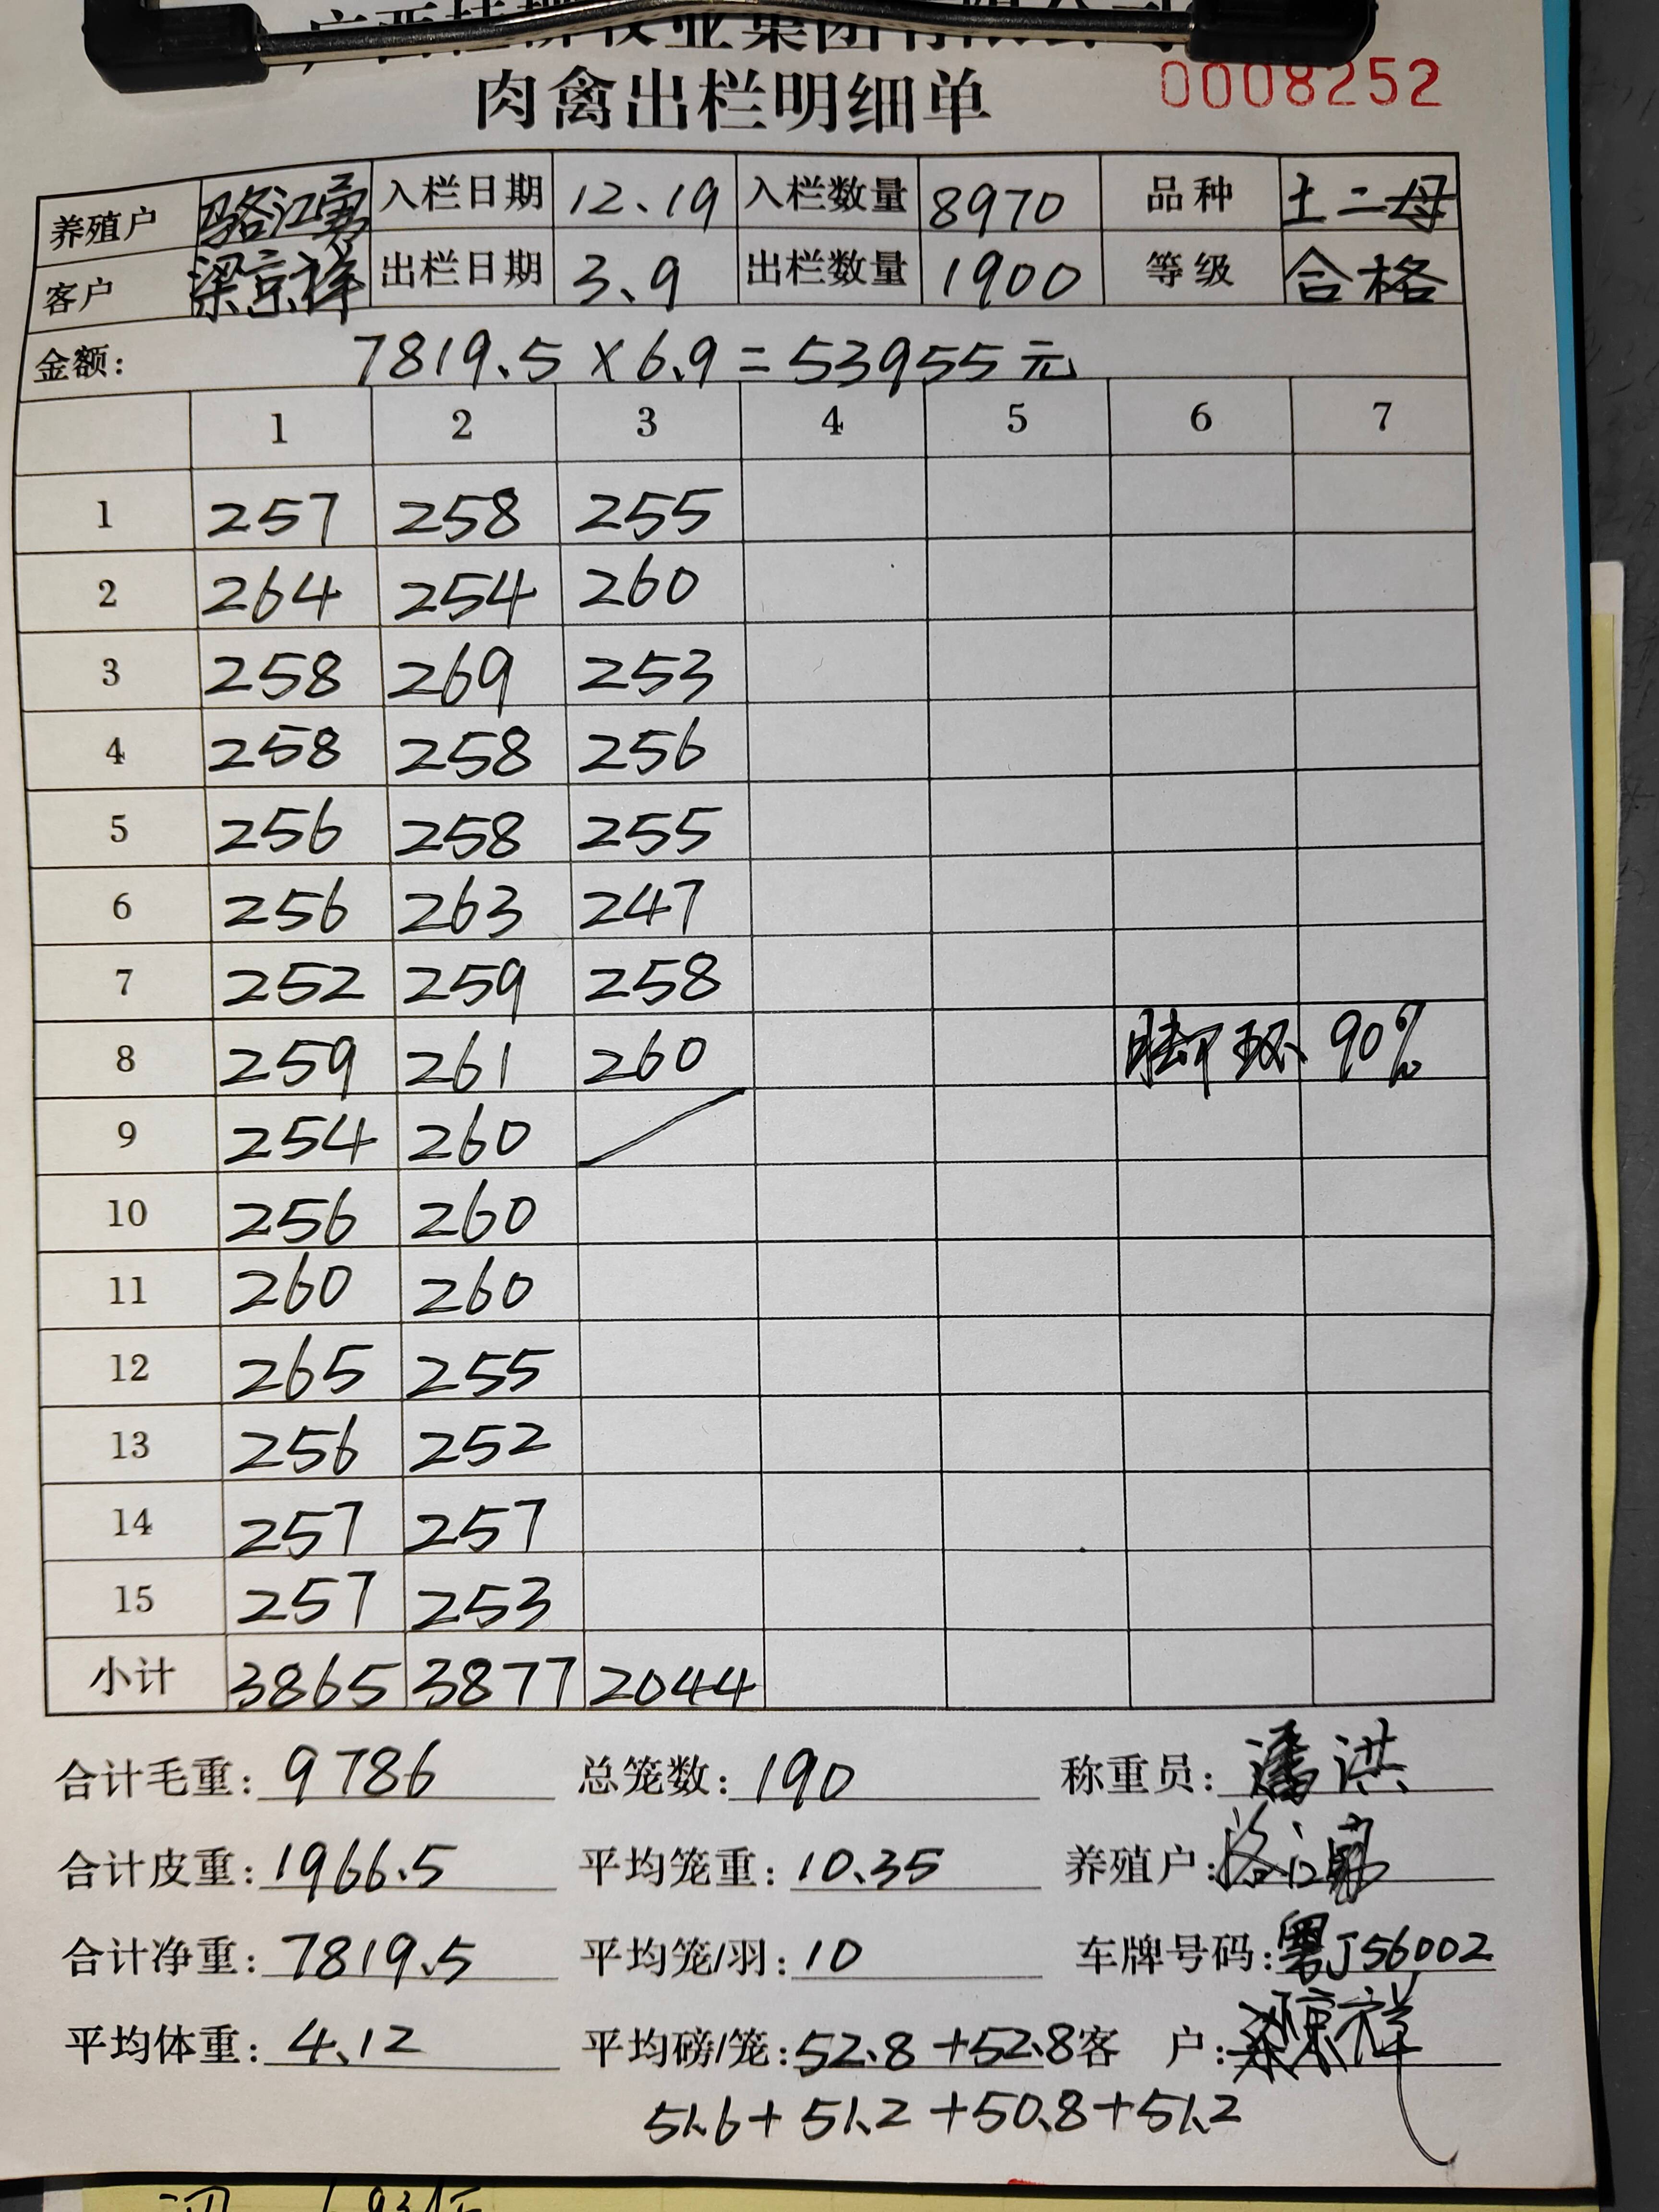 肉禽出栏明细单 0008252
养殖户 骆江勇 入栏日期 12.19 入栏数量 8970 品种 土二母
客户 梁京祥 出栏日期 3.9 出栏数量 1900 等级 合格
金额: 7819.5×6.9=53955元
1 2 3 4 5 6 7
1 257 258 255
2 264 254 260
3 258 269 253
4 258 258 256
5 256 258 255
6 256 263 247
7 252 259 258
8 259 261 260 脚环 90%
9 254 260
10 256 260
11 260 260
12 265 255
13 256 252
14 257 257
15 257 253
小计 3865 3877 2044
合计毛重: 9786 总笼数: 190 称重员: 潘洪
合计皮重: 1966.5 平均笼重: 10.35 养殖户:
合计净重: 7819.5 平均笼/羽: 10 车牌号码: 粤J56002
平均体重: 4.12 平均磅/笼: 52.8+52.8 客户: 梁京祥
51.6+51.2+50.8+51.2